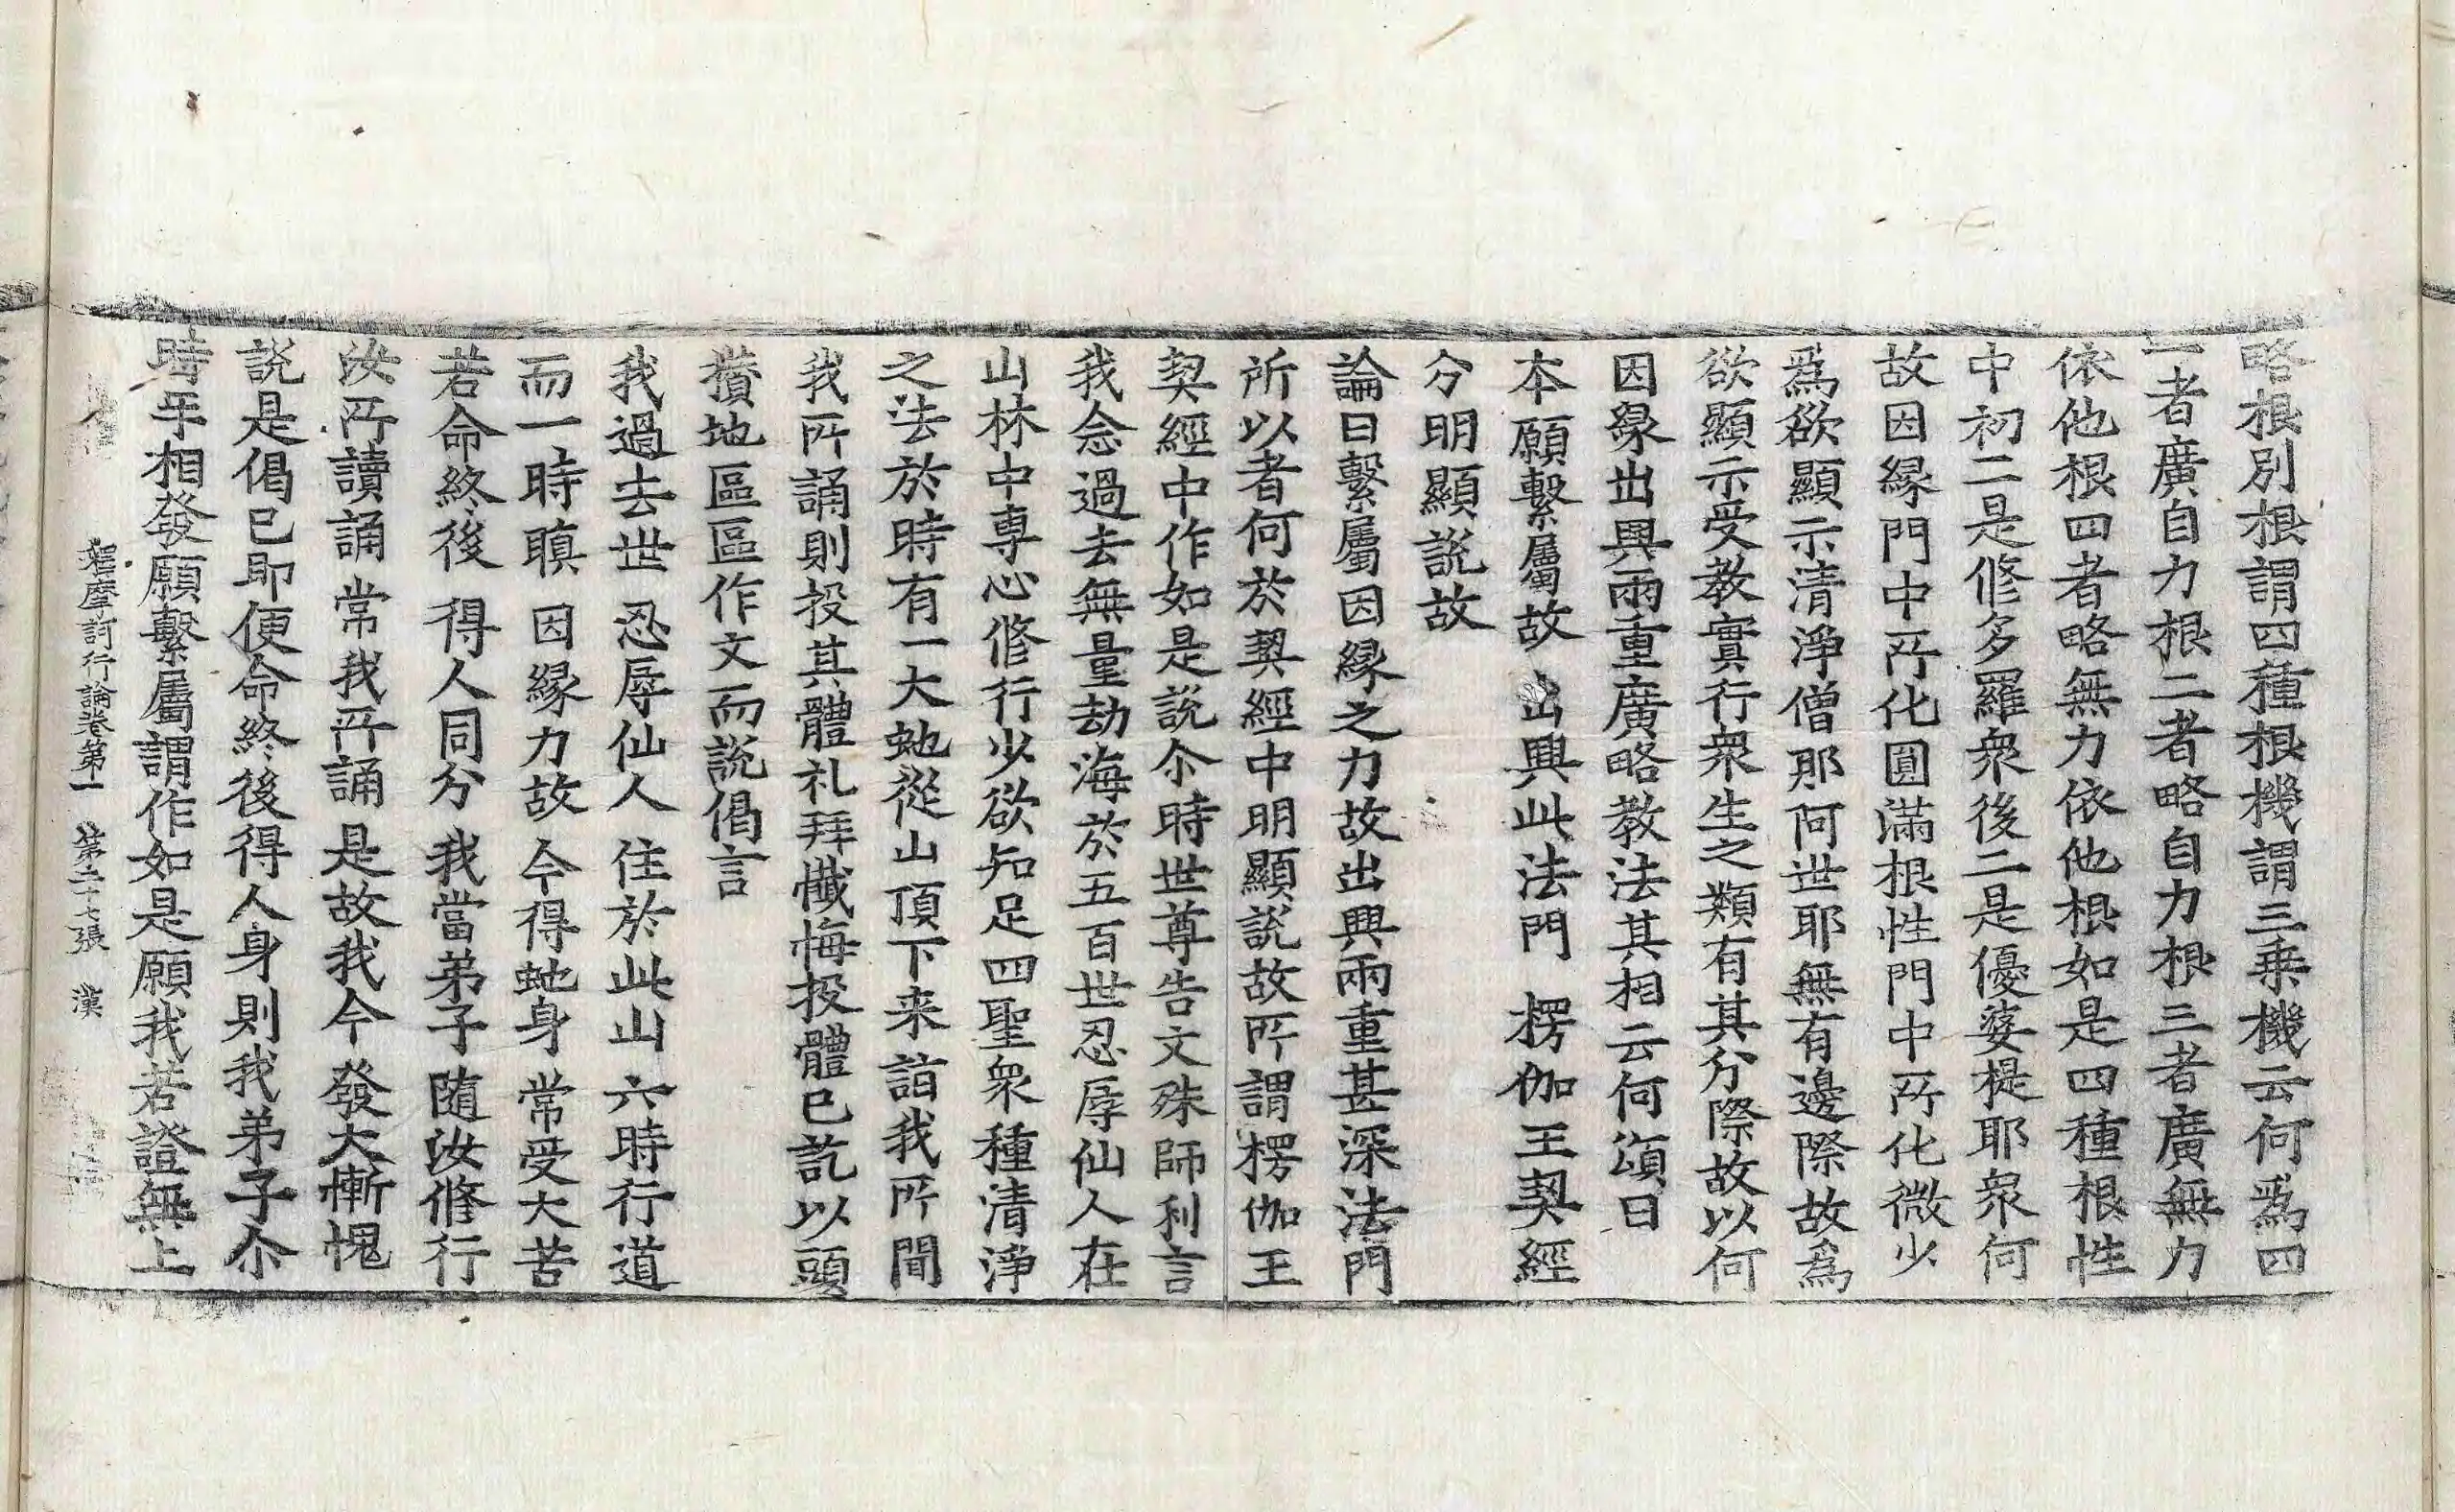 略根別根謂四種根機謂三乗機云何爲四
一者廣自力根二者略自力根三者廣無力
依他根四者略無力依他根如是四種根性
中初二是修多羅衆後二是優婆提耶衆何
故因縁門中所化圓滿根性門中所化微少
爲欲顯示清淨僧那阿世耶無有邊際故爲
欲顯示受教實行衆生之類有其分際故以何
因縁出興兩重廣略教法其相云何頌曰
本願繫屬故　出興此法門　楞伽王契經
分明顯説故
論曰繫屬因縁之力故出興兩重甚深法門
所以者何於契經中明顯説故所謂楞伽王
契經中作如是説尒時世尊告文殊師利言
我念過去無量劫海於五百世忍辱仙人在
山林中専心修行少欲知足四聖衆種清淨
之法於時有一大虵從山頂下来詣我所聞
我所誦則投其體礼拜懺悔投體已訖以頭
攢地區區作文而説偈言
我過去世　忍辱仙人　住於此山　六時行道
而一時瞋　因縁力故　今得虵身　常受大苦
若命終後　得人同分　我當弟子　隨汝修行
汝所讀誦　常我所誦　是故我今　發大慚愧
説是偈已即便命終後得人身則我弟子尒
時手相發願繫屬謂作如是願我若證無上
釋摩訶衍論卷第一　第二十七張　漢